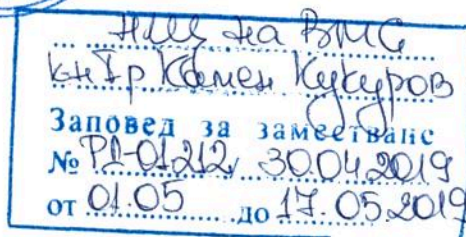 НЩ на ВМС
кн I р Камен Кукуров
Заповед за заместване
№ РД-01-212, 30.04.2019
от 01.05 до 17.05.2019